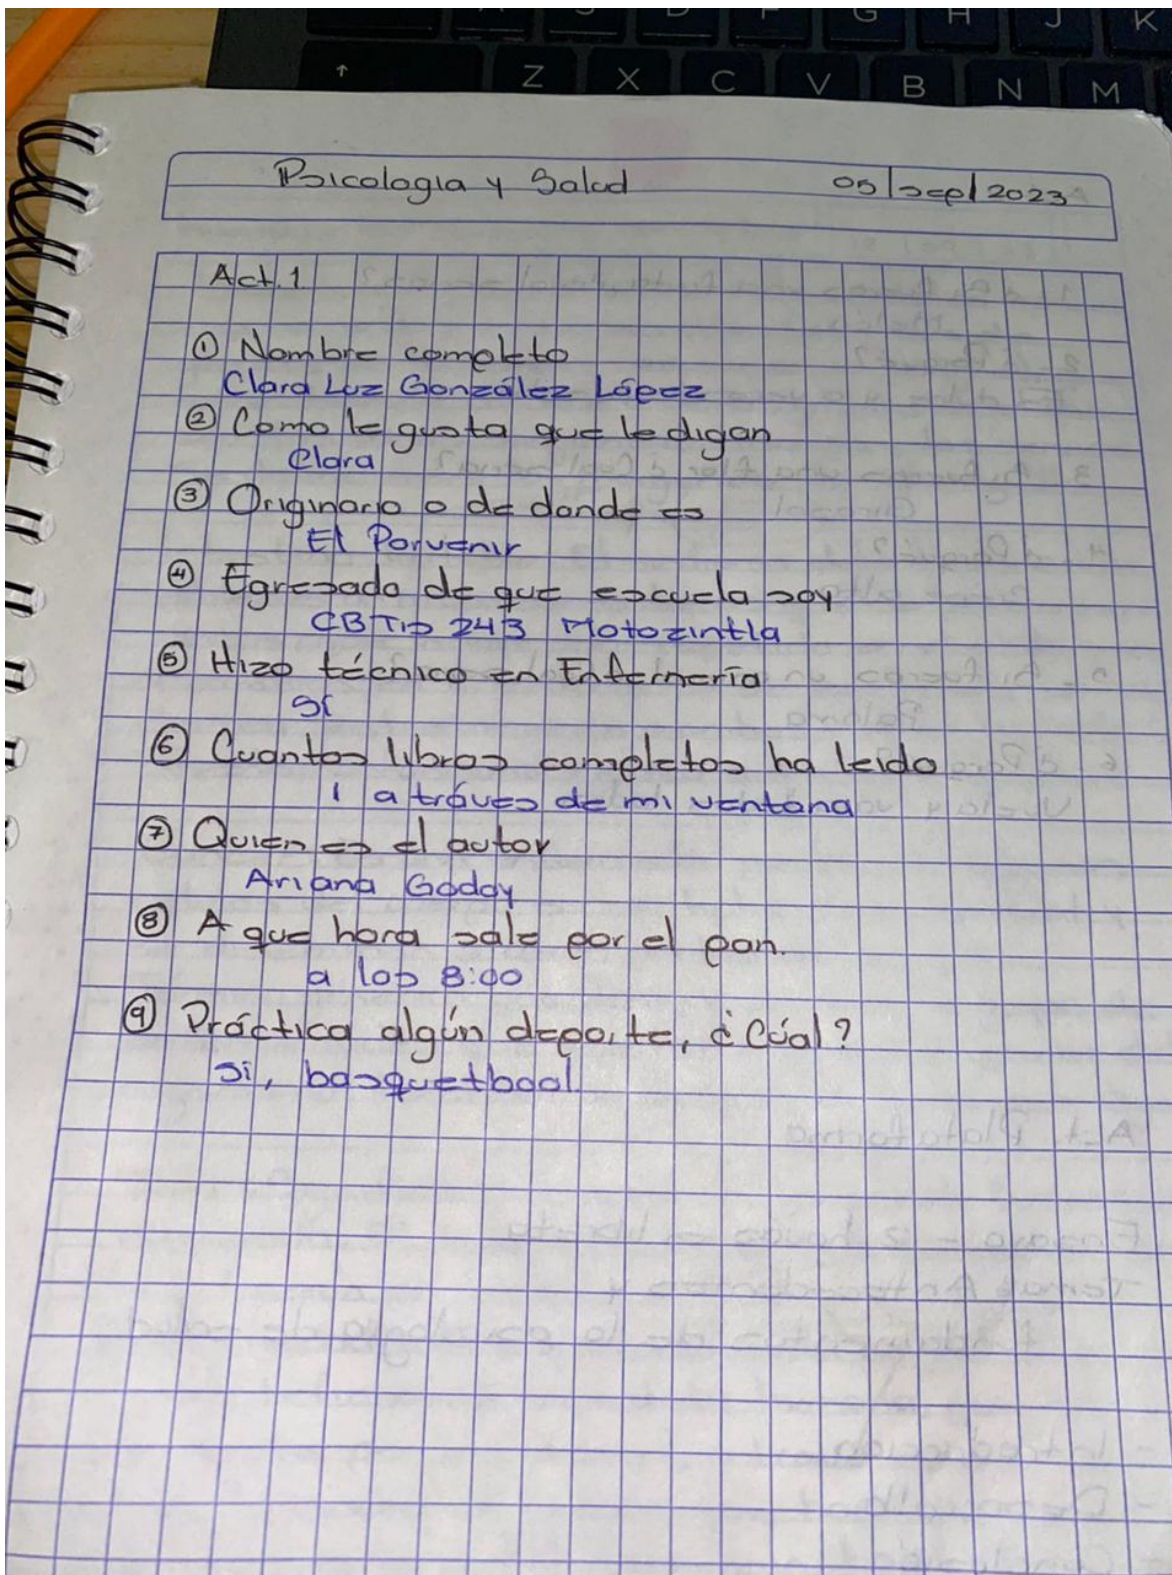 A S D F G H J K
Z X C V B N M
Psicologia y Salud 05/sep/2023
Act. 1
① Nombre completo
Clara Luz González López
② Como le gusta que le digan
Clara
③ Originario o de donde es
El Porvenir
④ Egresado de que escuela soy
CBTis 243 Motozintla
⑤ Hizo técnico en Enfermería
Sí
⑥ Cuantos libros completos ha leido
1 a tráves de mi ventana
⑦ Quien es el autor
Ariana Godoy
⑧ A que hora sale por el pan.
a las 8:00
⑨ Práctica algún deporte, ¿Cúal?
Si, basquetbool